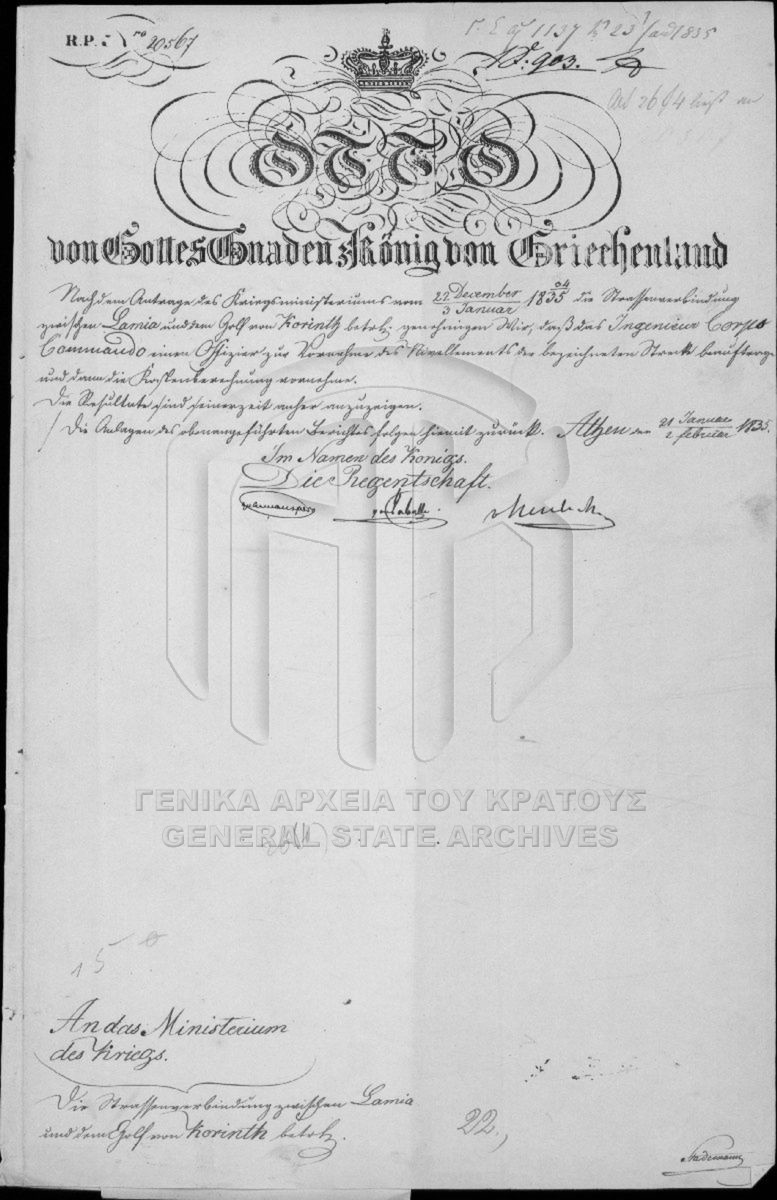 R.P. Nro 20567
1137
1835
No. 903.
OTTO
von Gottes Gnaden König von Griechenland
Nach dem Antrage des Kriegsministeriums vom 22 December / 3 Januar 1834/35 die Strassenverbindung
zwischen Lamia und dem Golf von Korinth betr. genehmigen Wir, daß das Ingenieur Corps
Commando einen Offizier zur Vornahme des Nivellements der bezeichneten Strecke beauftrage
und dann die Kostenberechnung vornehme.
Die Resultate sind seinerzeit anher anzuzeigen.
Die Anlagen des obenangeführten Berichtes folgen hiemit zurück. Athen den 21 Januar / 2 Februar 1835.
Im Namen des Königs.
Die Regentschaft.
ΓΕΝΙΚΑ ΑΡΧΕΙΑ ΤΟΥ ΚΡΑΤΟΥΣ
GENERAL STATE ARCHIVES
15
An das Ministerium
des Kriegs.
Die Strassenverbindung zwischen Lamia
und dem Golf von Korinth betr.
22.